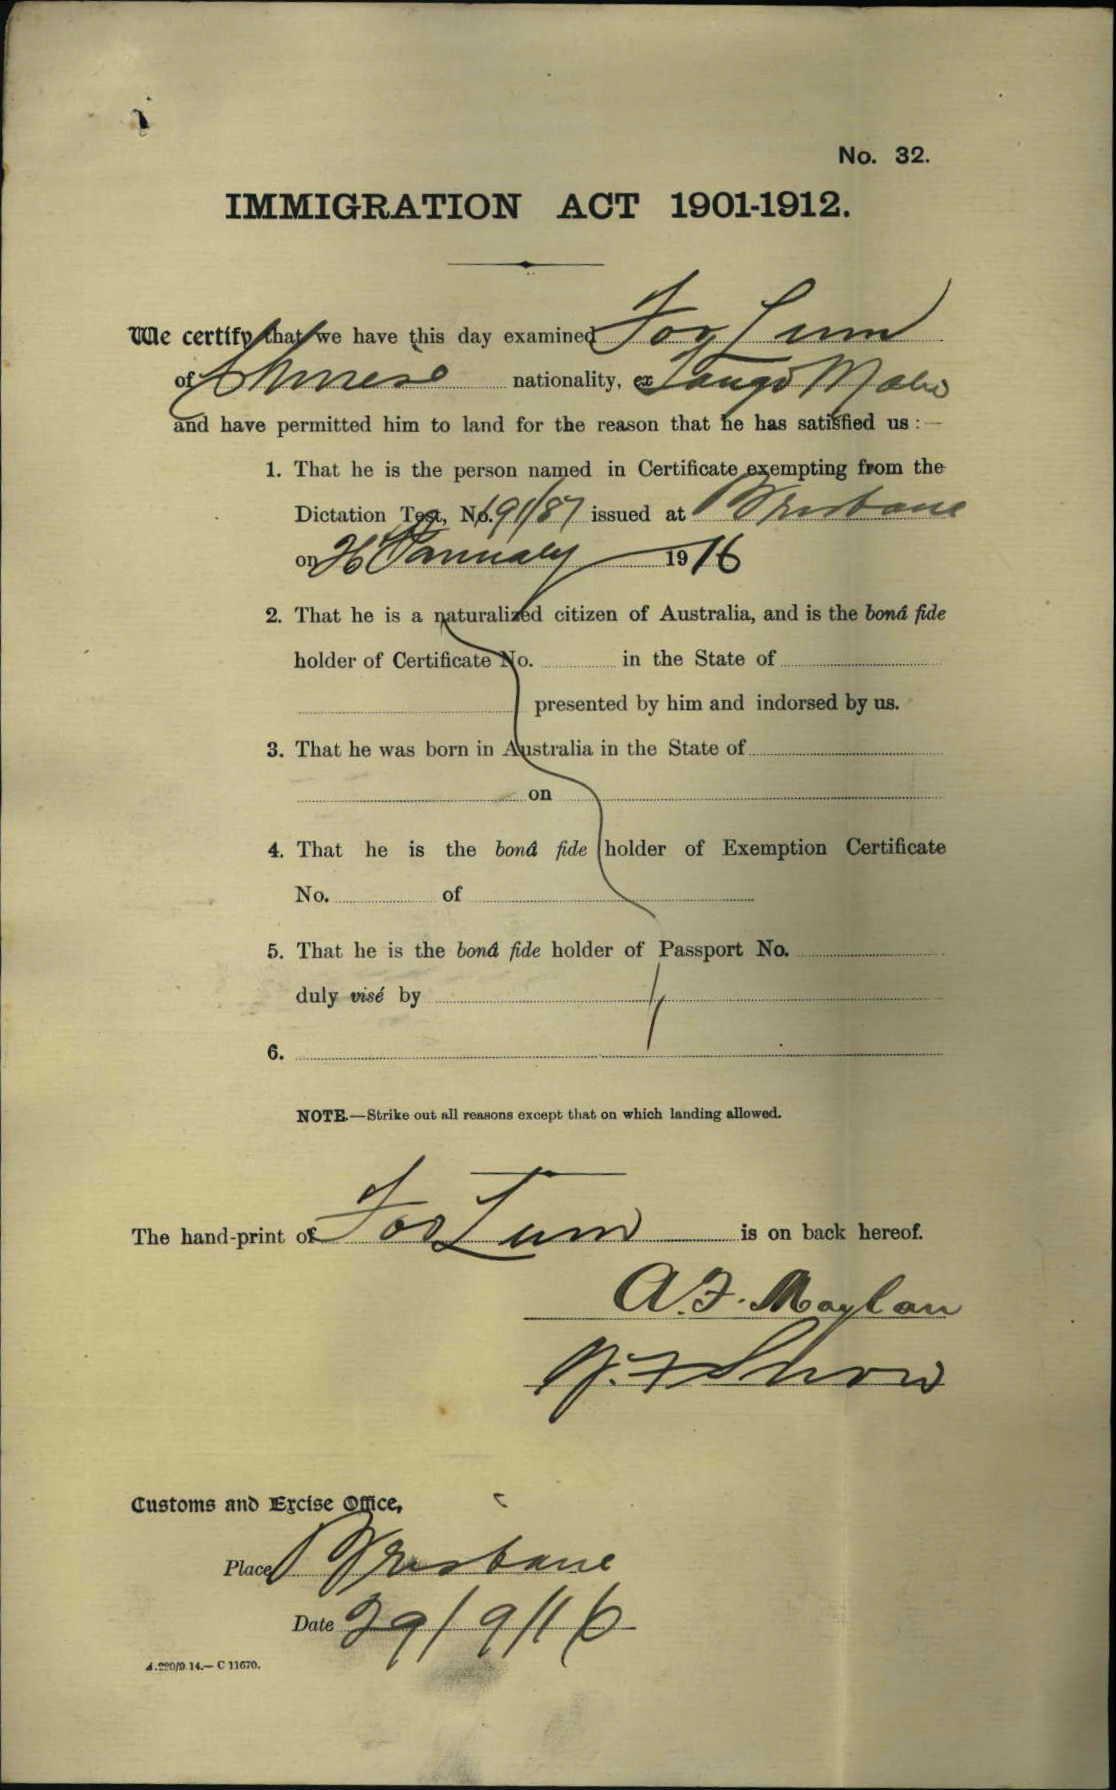 No. 32.
IMMIGRATION ACT 1901-1912.
We certify that we have this day examined Foo Lum
of Chinese nationality, ex Tango Maru
and have permitted him to land for the reason that he has satisfied us :—
1. That he is the person named in Certificate exempting from the
Dictation Test, No. 191/87 issued at Brisbane
on 26 January 1916
2. That he is a naturalized citizen of Australia, and is the boná fide
holder of Certificate No. in the State of
presented by him and indorsed by us.
3. That he was born in Australia in the State of
on
4. That he is the boná fide holder of Exemption Certificate
No. of
5. That he is the boná fide holder of Passport No.
duly visé by
6.
NOTE.—Strike out all reasons except that on which landing allowed.
The hand-print of Foo Lum is on back hereof.
A.F.
Customs and Excise Office,
Place Brisbane
Date 29/9/16
A.220/9.14.— C 11670.